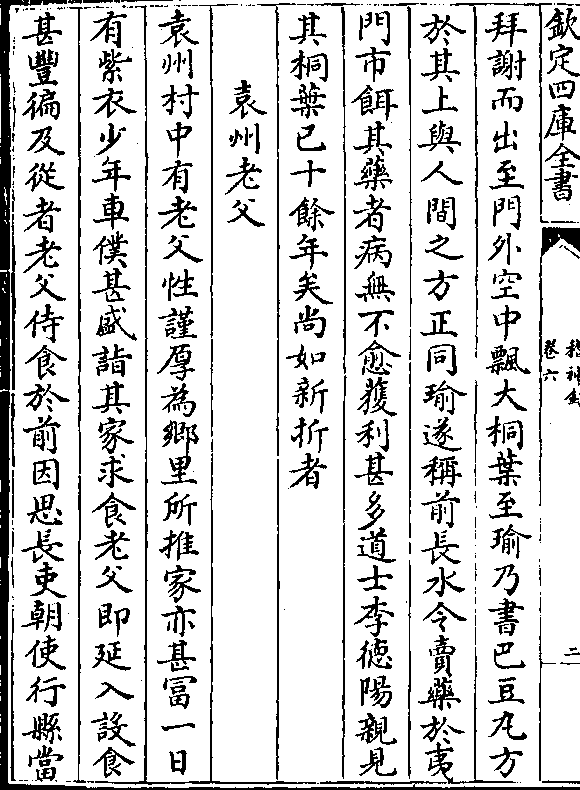 欽定四庫全書
稽神錄
卷六
二
拜謝而出至門外空中飄大桐葉至瑜乃書巴豆丸方
於其上與人間之方正同瑜遂稱前長水令賣藥於夷
門市餌其藥者病無不愈獲利甚多道士李德陽親見
其桐葉已十餘年矣尚如新折者
袁州老父
袁州村中有老父性謹厚為鄉里所推家亦甚富一日
有紫衣少年車僕甚盛詣其家求食老父即延入設食
甚豐徧及從者老父侍食於前因思長吏朝使行縣當